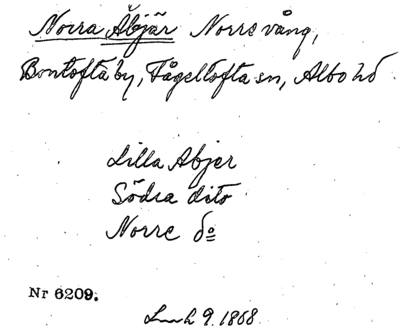 Norra Åbjär Norrevång,
Bontofta by, Fågeltofta sn, Albo hd
Lilla Abjer
Södra dito
Norre do
Nr 6209.
9. 1868